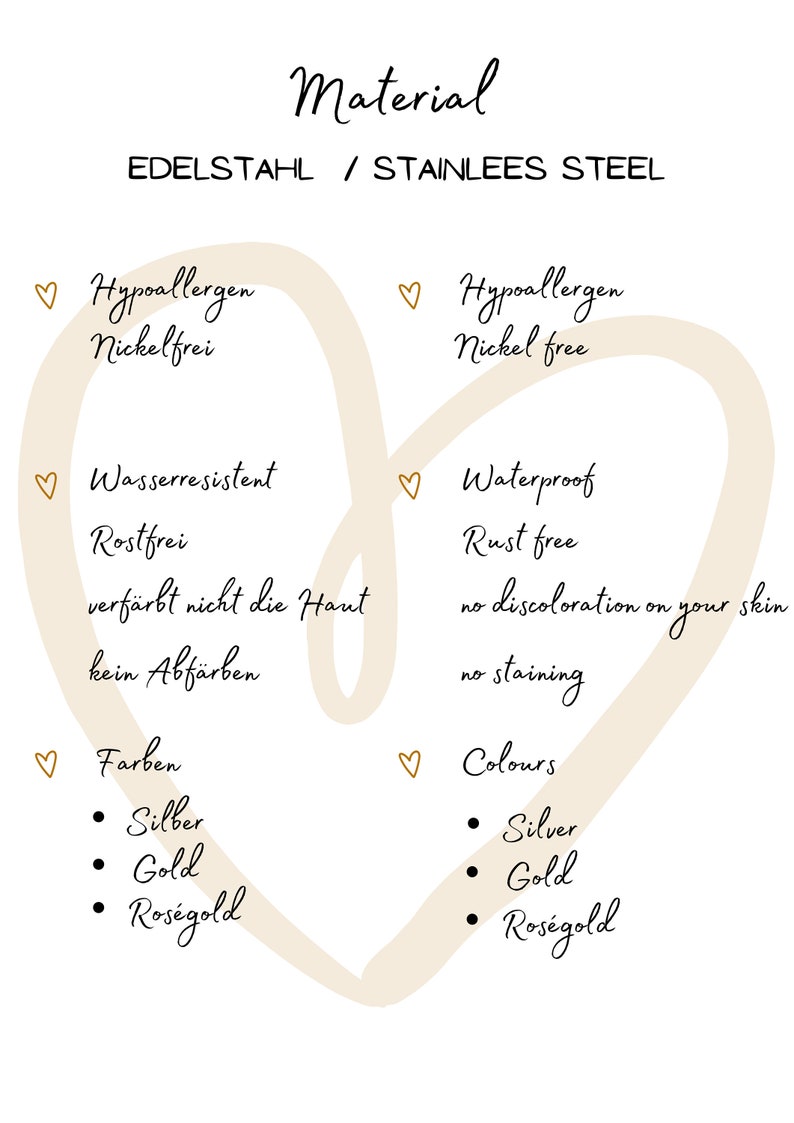 Material
EDELSTAHL / STAINLEES STEEL
Hypoallergen
Nickelfrei
Wasserresistent
Rostfrei
verfärbt nicht die Haut
kein Abfärben
Farben
• Silber
• Gold
• Roségold
Hypoallergen
Nickel free
Waterproof
Rust free
no discoloration on your skin
no staining
Colours
• Silver
• Gold
• Roségold